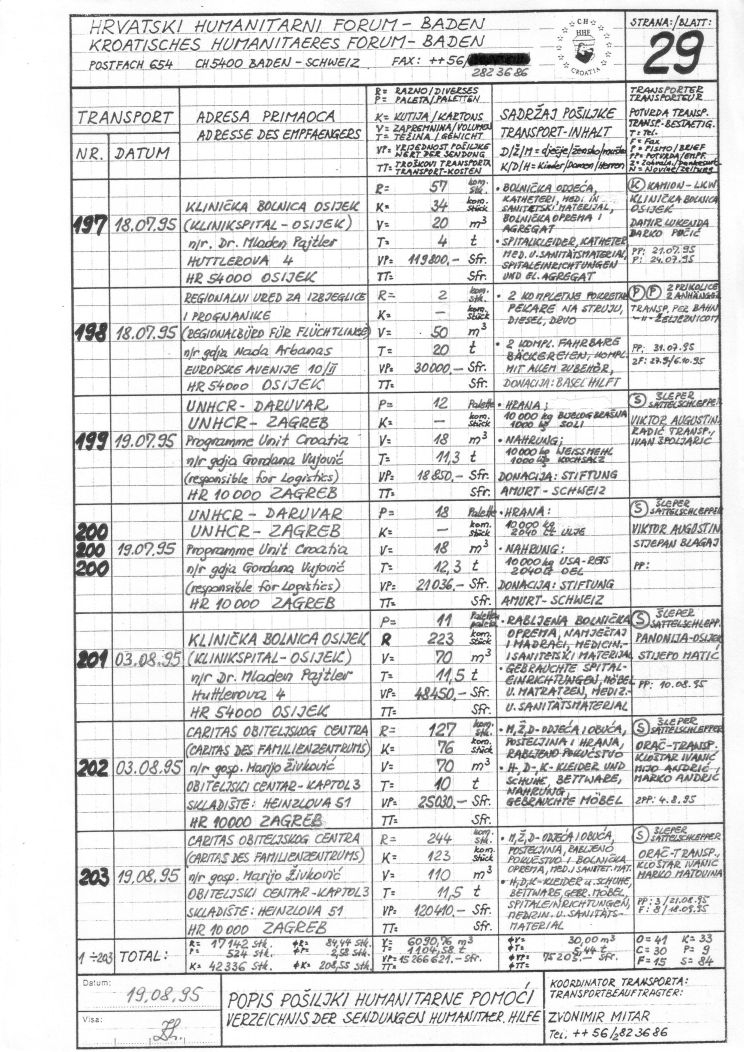 HRVATSKI HUMANITARNI FORUM - BADEN
KROATISCHES HUMANITAERES FORUM - BADEN
POSTFACH 654 CH 5400 BADEN - SCHWEIZ FAX: ++ 56/
282 36 86
CH
HHF
CROATIA
STRANA:/BLATT:
29
TRANSPORT
NR. DATUM
ADRESA PRIMAOCA
ADRESSE DES EMPFAENGERS
R= RAZNO/DIVERSES
P= PALETA/PALETTEN
K= KUTIJA/KARTONS
V= ZAPREMNINA/VOLUMEN
T= TEŽINA/GEWICHT
VP= VRIJEDNOST POŠILJKE
WERT DER SENDUNG
TT= TROŠKOVI TRANSPORTA
TRANSPORT-KOSTEN
SADRŽAJ POŠILJKE
TRANSPORT-INHALT
D/Ž/M= dječje/žensko/muško
K/D/H= Kinder/Damen/Herren
TRANSPORTER
TRANSPORTEUR
POTVRDA TRANSP.
TRANSP.-BESTAETIG.
T= Tel.
F= Fax
P= PISMO/BRIEF
PP= POTVRDA/EMPF.
N= Novine/Zeitung
197 18.07.95
KLINIČKA BOLNICA OSIJEK
(KLINIKSPITAL - OSIJEK)
n/r. Dr. Mladen Pajtler
HUTTLEROVA 4
HR 54000 OSIJEK
R= 57 kom. stk.
K= 34 kom. stück
V= 20 m³
T= 4 t
VP= 119800,- Sfr.
TT= Sfr.
• BOLNIČKA ODJEĆA,
KATHETERI, MED. IN
SANITETSKI MATERIJAL,
BOLNIČKA OPREMA I
AGREGAT
• SPITALKLEIDER, KATHETER,
MED. U. SANITÄTSMATERIAL,
SPITALEINRICHTUNGEN
UND EL. AGREGAT
K KAMION - LKW
KLINIČKA BOLNICA
OSIJEK
DAMIR LUKENDA
DARKO
PP: 21.07.95
P: 24.07.95
198 18.07.95
REGIONALNI URED ZA IZBJEGLICE
I PROGNANIKE
(REGIONALBÜRO FÜR FLÜCHTLINGE)
n/r gdja Nada Arbanas
EUROPSKE AVENIJE 10/II
HR 54000 OSIJEK
R= 2 kom. stk.
K= - kom. stück
V= 50 m³
T= 20 t
VP= 30000,- Sfr.
TT= Sfr.
• 2 KOMPLETNE POKRETNE
PEKARE NA STRUJU,
DIESEL, DRVO
• 2 KOMPL. FAHRBARE
BÄCKEREIEN, KOMPL.
MIT ALLEM ZUBEHÖR,
DONACIJA: BASEL HILFT
P P 2 PRIKOLICE
2 ANHÄNGER
TRANSP. PER BAHN
-"- ŽELJEZNICOM
PP: 31.07.95
2F: 27.9/6.10.95
199 19.07.95
UNHCR - DARUVAR
UNHCR - ZAGREB
Programme Unit Croatia
n/r gdja Gordana Vujović
(responsible for Logistics)
HR 10000 ZAGREB
P= 12 Palette
K= - kom. stück
V= 18 m³
T= 11,3 t
VP= 18850,- Sfr.
TT= Sfr.
• HRANA:
10 000 kg BIJELOG BRAŠNA
1000 kg SOLI
• NAHRUNG:
10 000 kg WEISSMEHL
1000 kg KOCHSALZ
DONACIJA: STIFTUNG
AMURT - SCHWEIZ
S ŠLEPER
SATTELSCHLEPPER
VIKTOR AUGUSTIN
RADIĆ TRANSP.,
IVAN ŠPOLJARIC
200
200
200
19.07.95
UNHCR - DARUVAR
UNHCR - ZAGREB
Programme Unit Croatia
n/r gdja Gordana Vujović
(responsible for Logistics)
HR 10000 ZAGREB
P= 18 Palette
K= - kom. stück
V= 18 m³
T= 12,3 t
VP= 21036,- Sfr.
TT= Sfr.
• HRANA:
10 000 kg
2040 Lt ULJE
• NAHRUNG:
10 000 kg USA-REIS
2040 OEL
DONACIJA: STIFTUNG
AMURT - SCHWEIZ
S ŠLEPER
SATTELSCHLEPPER
VIKTOR AUGUSTIN
STJEPAN BLAGAJ
PP:
201 03.08.95
KLINIČKA BOLNICA OSIJEK
(KLINIKSPITAL - OSIJEK)
n/r Dr. Mladen Pajtler
Huttlerova 4
HR 54000 OSIJEK
P= 11 Paletten
R 223 kom. stück
V= 70 m³
T= 11,5 t
VP= 48450,- Sfr.
TT= Sfr.
• RABLJENA BOLNIČKA
OPREMA, NAMJEŠTAJ
I MADRACI, MEDICIN.-
I SANITETSKI MATERIJAL
• GEBRAUCHTE SPITAL-
EINRICHTUNGEN, MÖBEL
U. MATRATZEN, MEDIZ.-
U. SANITÄTSMATERIAL
S ŠLEPER
SATTELSCHLEPP.
PANONIJA-OSIJEK
STIJEPO MATIĆ
PP: 10.08.95
202 03.08.95
CARITAS OBITELJSKOG CENTRA
(CARITAS DES FAMILIENZENTRUMS)
n/r gosp. Marijo Živković
OBITELJSKI CENTAR - KAPTOL 3
SKLADIŠTE: HEINZLOVA 51
HR 10000 ZAGREB
R= 127 kom. stk.
K= 76 kom. stück
V= 70 m³
T= 10 t
VP= 25030,- Sfr.
TT= Sfr.
• M, Ž, D-ODJEĆA I OBUĆA,
POSTELJINA I HRANA,
RABLJENO POKUĆSTVO
• H-, D-, K-KLEIDER UND
SCHUHE, BETTWARE,
NAHRUNG,
GEBRAUCHTE MÖBEL
S ŠLEPER
SATTELSCHLEPPER
ORAČ-TRANSP.
KLOŠTAR IVANIC
MIJO ANDRIĆ,
MARKO ANDRIĆ
2PP: 4.8.95
203 19.08.95
CARITAS OBITELJSKOG CENTRA
(CARITAS DES FAMILIENZENTRUMS)
n/r gosp. Marijo Živković
OBITELJSKI CENTAR - KAPTOL 3
SKLADIŠTE: HEINZLOVA 51
HR 10000 ZAGREB
R= 244 kom. stk.
K= 123 kom. stück
V= 110 m³
T= 11,5 t
VP= 120410,- Sfr.
TT= Sfr.
• M, Ž, D-ODJEĆA I OBUĆA,
POSTELJINA, RABLJENO
POKUĆSTVO I BOLNIČKA
OPREMA, MED. I SANITET. MAT.
• H, D, K-KLEIDER U. SCHUHE,
BETTWARE, GEBR. MÖBEL,
SPITALEINRICHTUNGEN,
MEDIZIN. U. SANITÄTS-
MATERIAL
S ŠLEPER
SATTELSCHLEPPER
ORAČ-TRANSP.,
KLOŠTAR IVANIC
MARKO MATOVINA
PP: 3/21.08.95
F: 8/18.09.95
1÷203 TOTAL:
R= 17142 stk. ΦR= 84,44 stk.
P= 524 stk. ΦP= 2,58 stk.
K= 42336 stk. ΦK= 208,55 stk.
V= 6090,76 m³ ΦV= 30,00 m³
T= 1104,58 t ΦT= 5,44 t
VP= 15266621,- Sfr. ΦVP= 75205,- Sfr.
TT= ΦTT=
O = 41 K = 33
C = 30 P = 9
F = 15 S = 84
Datum:
19.08.95
Visa:
POPIS POŠILJKI HUMANITARNE POMOĆI
VERZEICHNIS DER SENDUNGEN HUMANITAER. HILFE
KOORDINATOR TRANSPORTA:
TRANSPORTBEAUFTRAGTER:
ZVONIMIR MITAR
Tel. ++ 56/282 36 86